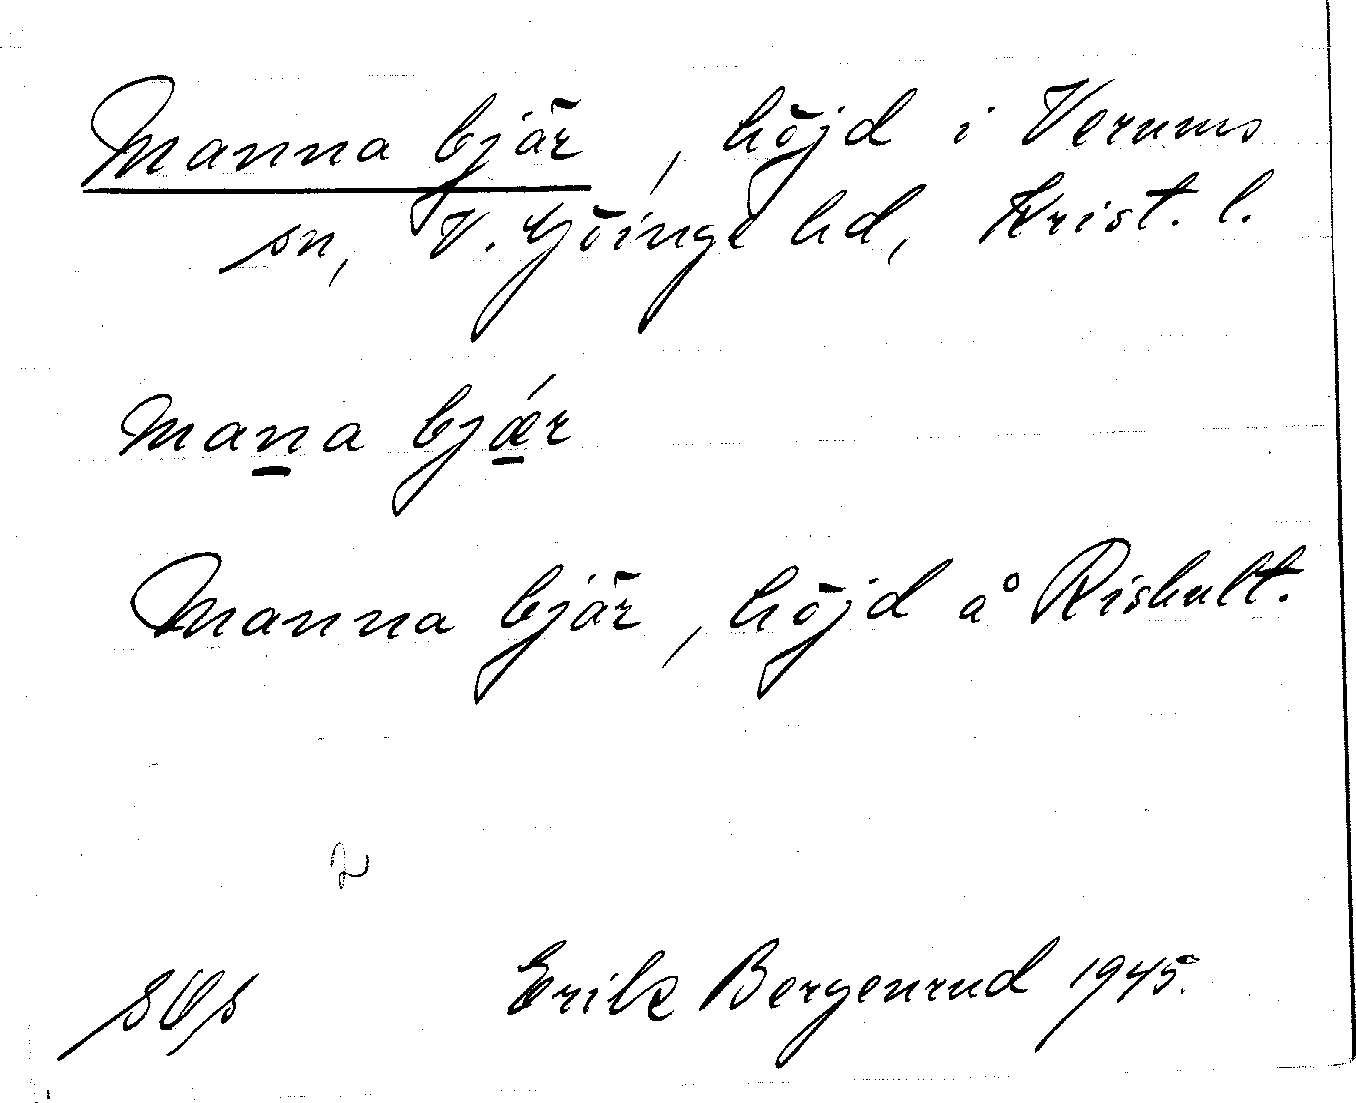 Manna bjär, höjd i Verums
sn, V. Göinge hd, Krist. l.
mana bjǽr
Manna bjär, höjd å Rishult.
2
Erik Bergenrud 1945.